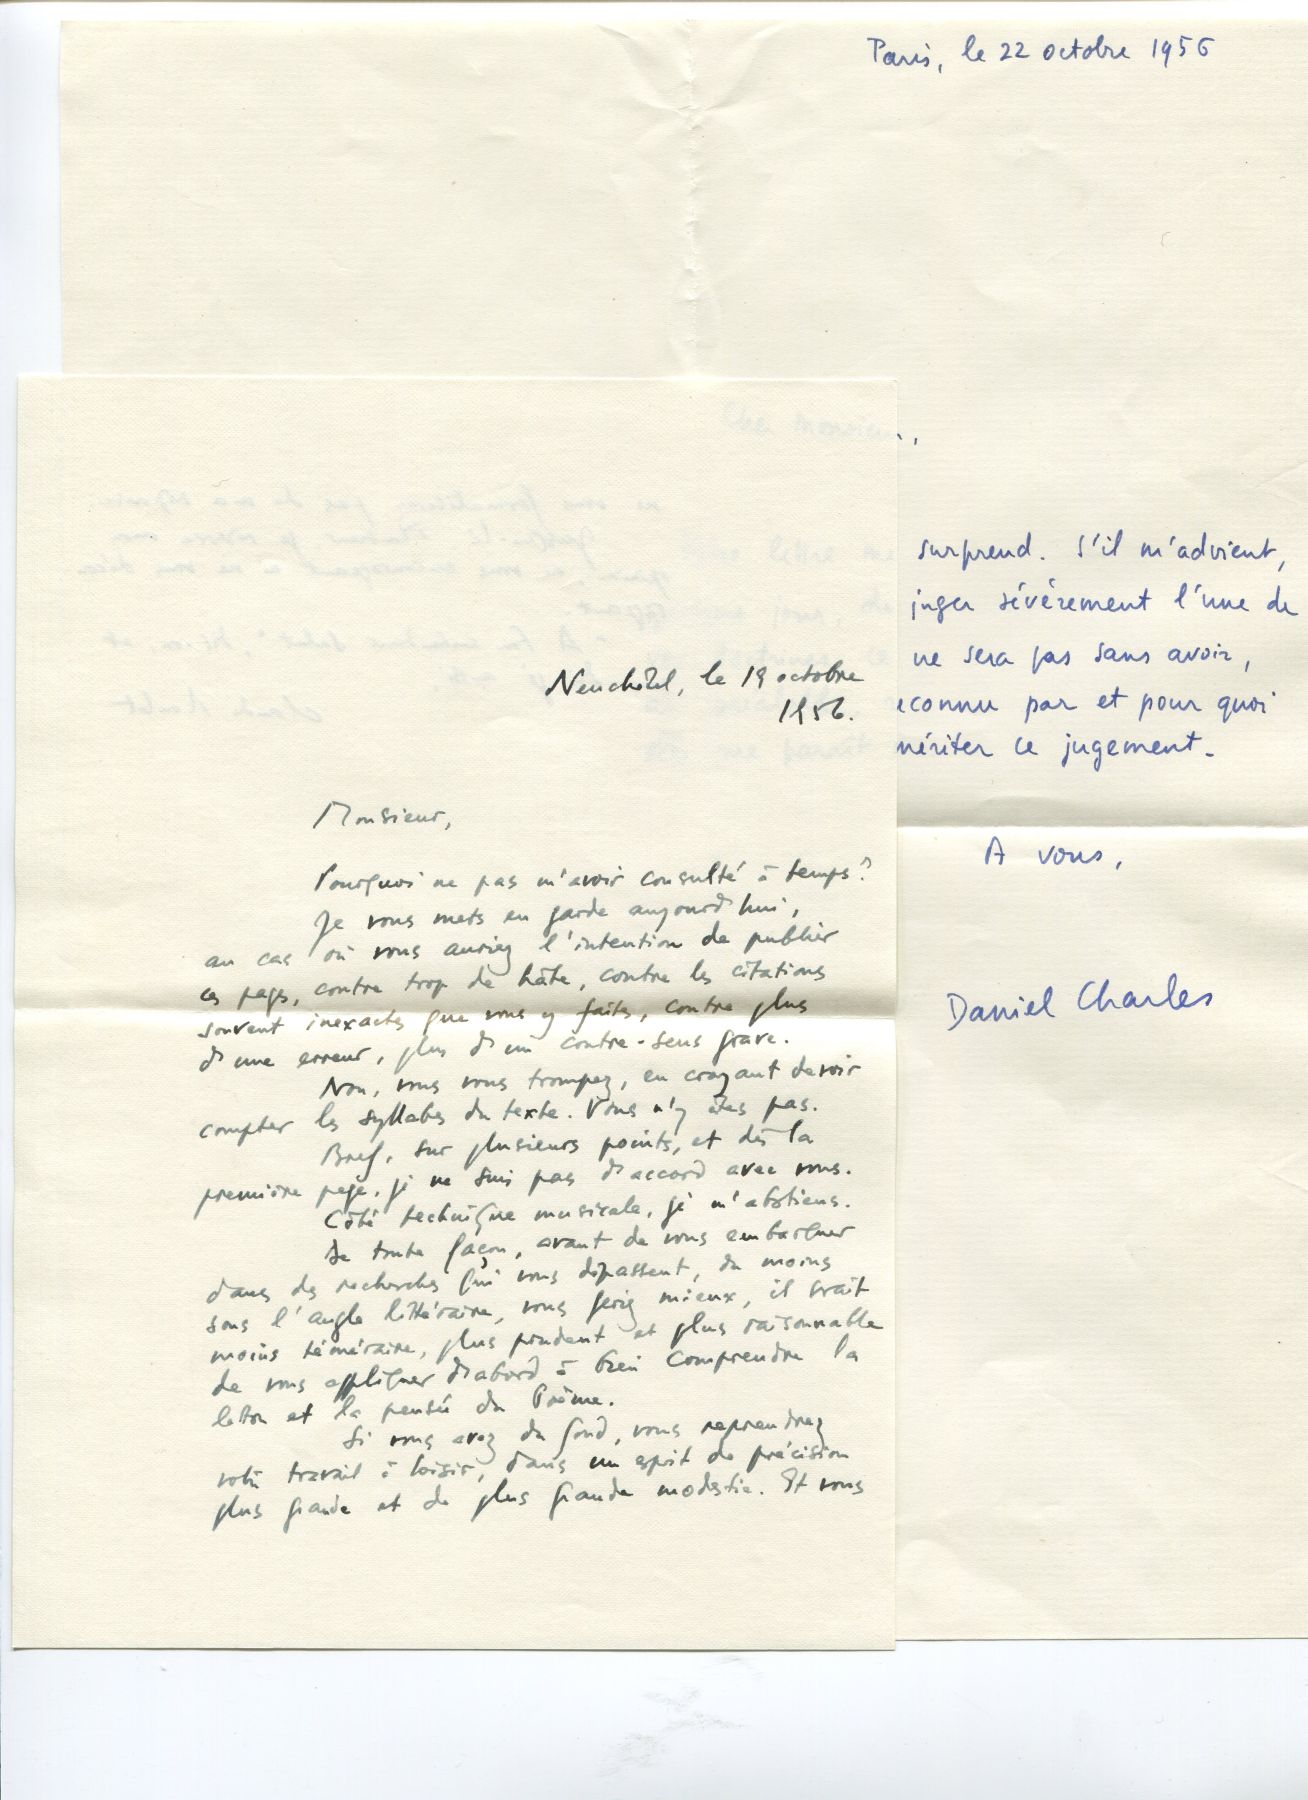 Paris, le 22 octobre 1956
surprend. S'il m'advient,
juger sévèrement l'une de
ne sera pas sans avoir,
econnu par et pour quoi
mériter ce jugement.
A vous,
Daniel Charles
Neuchâtel, le 19 octobre
1956.
Monsieur,
Pourquoi ne pas m'avoir consulté à temps?
Je vous mets en garde aujourd'hui,
au cas où vous auriez l'intention de publier
ces pages, contre trop de hâte, contre les citations
souvent inexactes que vous y faites, contre plus
d'une erreur, plus d'un contre-sens grave.
Non, vous vous trompez, en croyant devoir
compter les syllabes du texte. Vous n'y êtes pas.
Bref, sur plusieurs points, et dès la
première page, je ne suis pas d'accord avec vous.
Côté technique musicale, je m'abstiens.
De toute façon, avant de vous embarquer
dans des recherches qui vous dépassent, du moins
sous l'angle littéraire, vous feriez mieux, il serait
moins téméraire, plus prudent et plus raisonnable
de vous appliquer d'abord à bien comprendre la
lettre et la pensée du Poème.
Si vous avez du fond, vous reprendrez
votre travail à loisir, dans un esprit de précision
plus grande et de plus grande modestie. Et vous